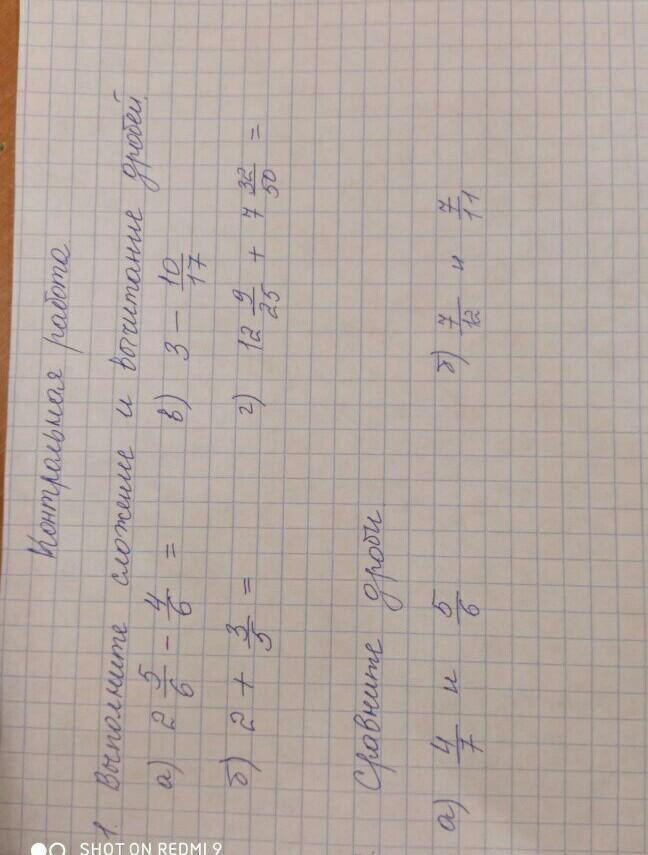 Контрольная работа
1. Выполните сложение и вычитание дробей
а) 2 5/6 - 4/6 = в) 3 - 10/17
б) 2 + 3/5 = г) 12 9/25 + 7 32/50 =
Сравните дроби
а) 4/7 и 5/6 б) 7/12 и 7/11
SHOT ON REDMI 9